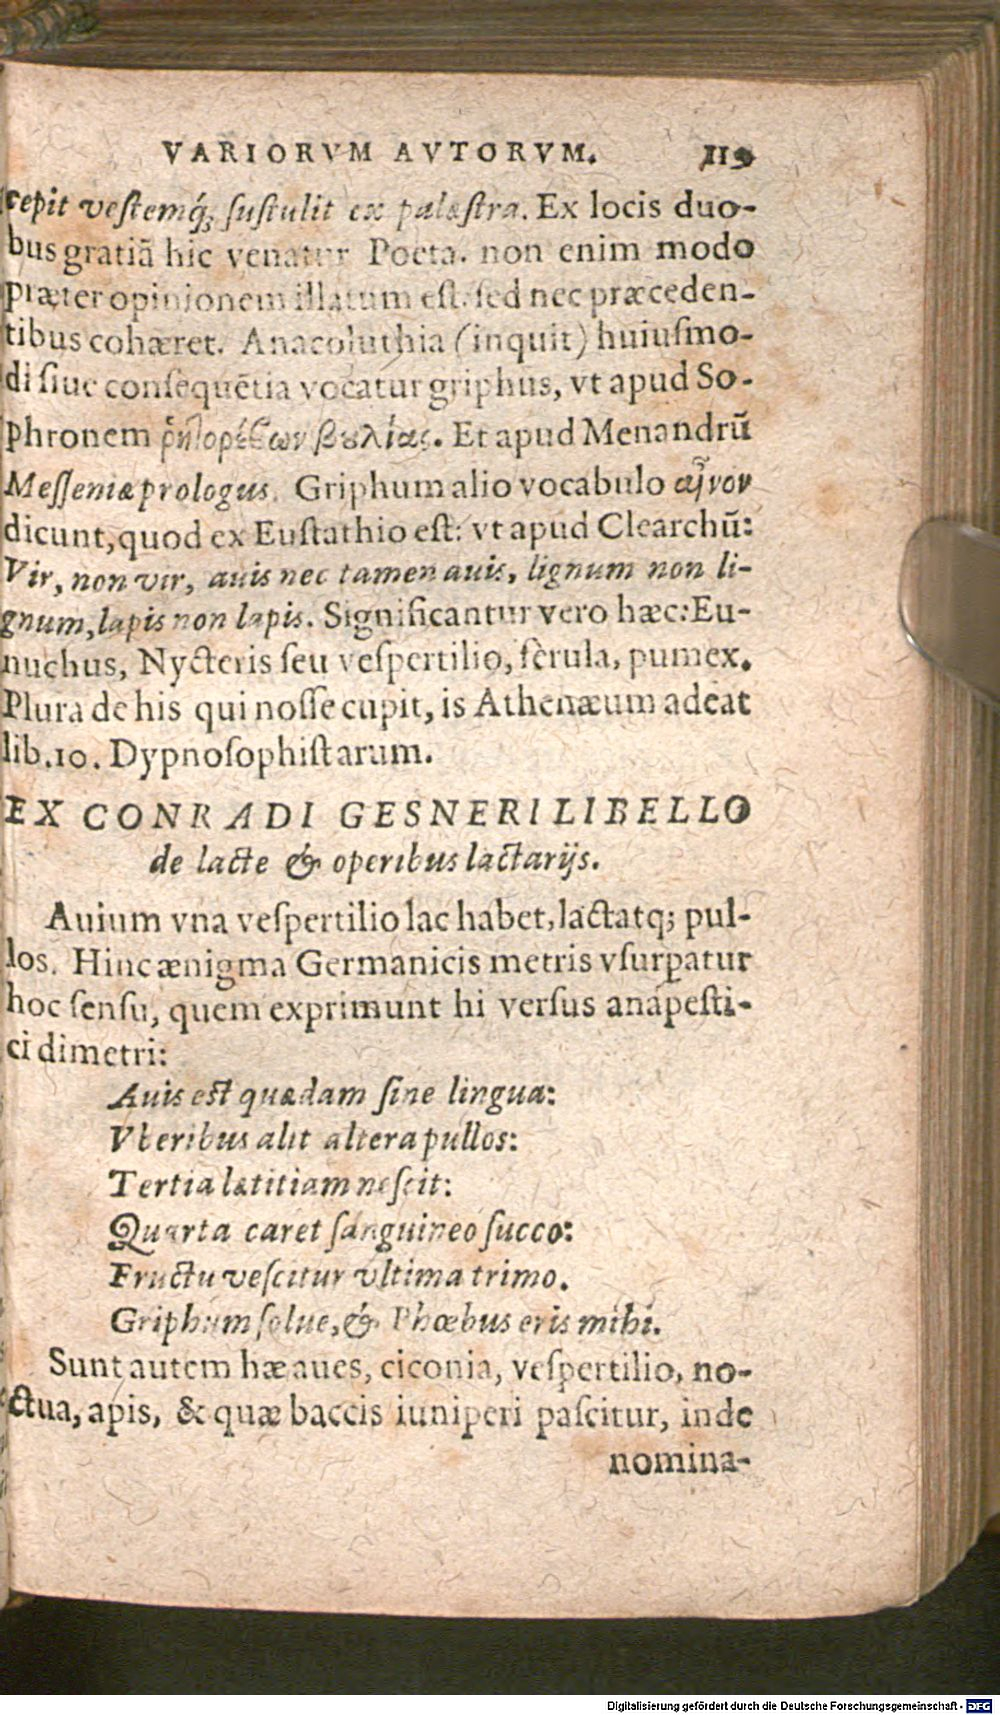 VARIORVM AVTORVM. 119
cepit veſtemq́; ſuſtulit ex palæſtra. Ex locis duo-
bus gratiã hic venatur Poeta. non enim modo
præter opinionem illatum eſt. ſed nec præceden-
tibus cohæret. Anacoluthia (inquit) huiuſmo-
di ſiue conſequẽtia vocatur griphus, vt apud So-
phronem βουλίας. Et apud Menandrũ
Meſſeniæ prologus. Griphum alio vocabulo αἶνον
dicunt, quod ex Euſtathio eſt: vt apud Clearchũ:
Vir, non vir, auis nec tamen auis, lignum non li-
gnum, lapis non lapis. Significantur vero hæc: Eu-
nuchus, Nycteris ſeu veſpertilio, fèrula, pumex.
Plura de his qui noſſe cupit, is Athenæum adeat
lib. 10. Dypnoſophiſtarum.
EX CONRADI GESNERI LIBELLO
de lacte & operibus lactarijs.
Auium vna veſpertilio lac habet, lactatq; pul-
los. Hinc ænigma Germanicis metris vſurpatur
hoc ſenſu, quem exprimunt hi verſus anapeſti-
ci dimetri:
Auis eſt quædam ſine lingua:
Vberibus alit altera pullos:
Tertia lætitiam neſcit:
Quarta caret ſanguineo ſucco:
Fructu veſcitur vltima trimo.
Griphum ſolue, & Phœbus eris mihi.
Sunt autem hæ aues, ciconia, veſpertilio, no-
ctua, apis, & quæ baccis iuniperi paſcitur, inde
nomina-
Digitalisierung gefördert durch die Deutsche Forschungsgemeinschaft - DFG